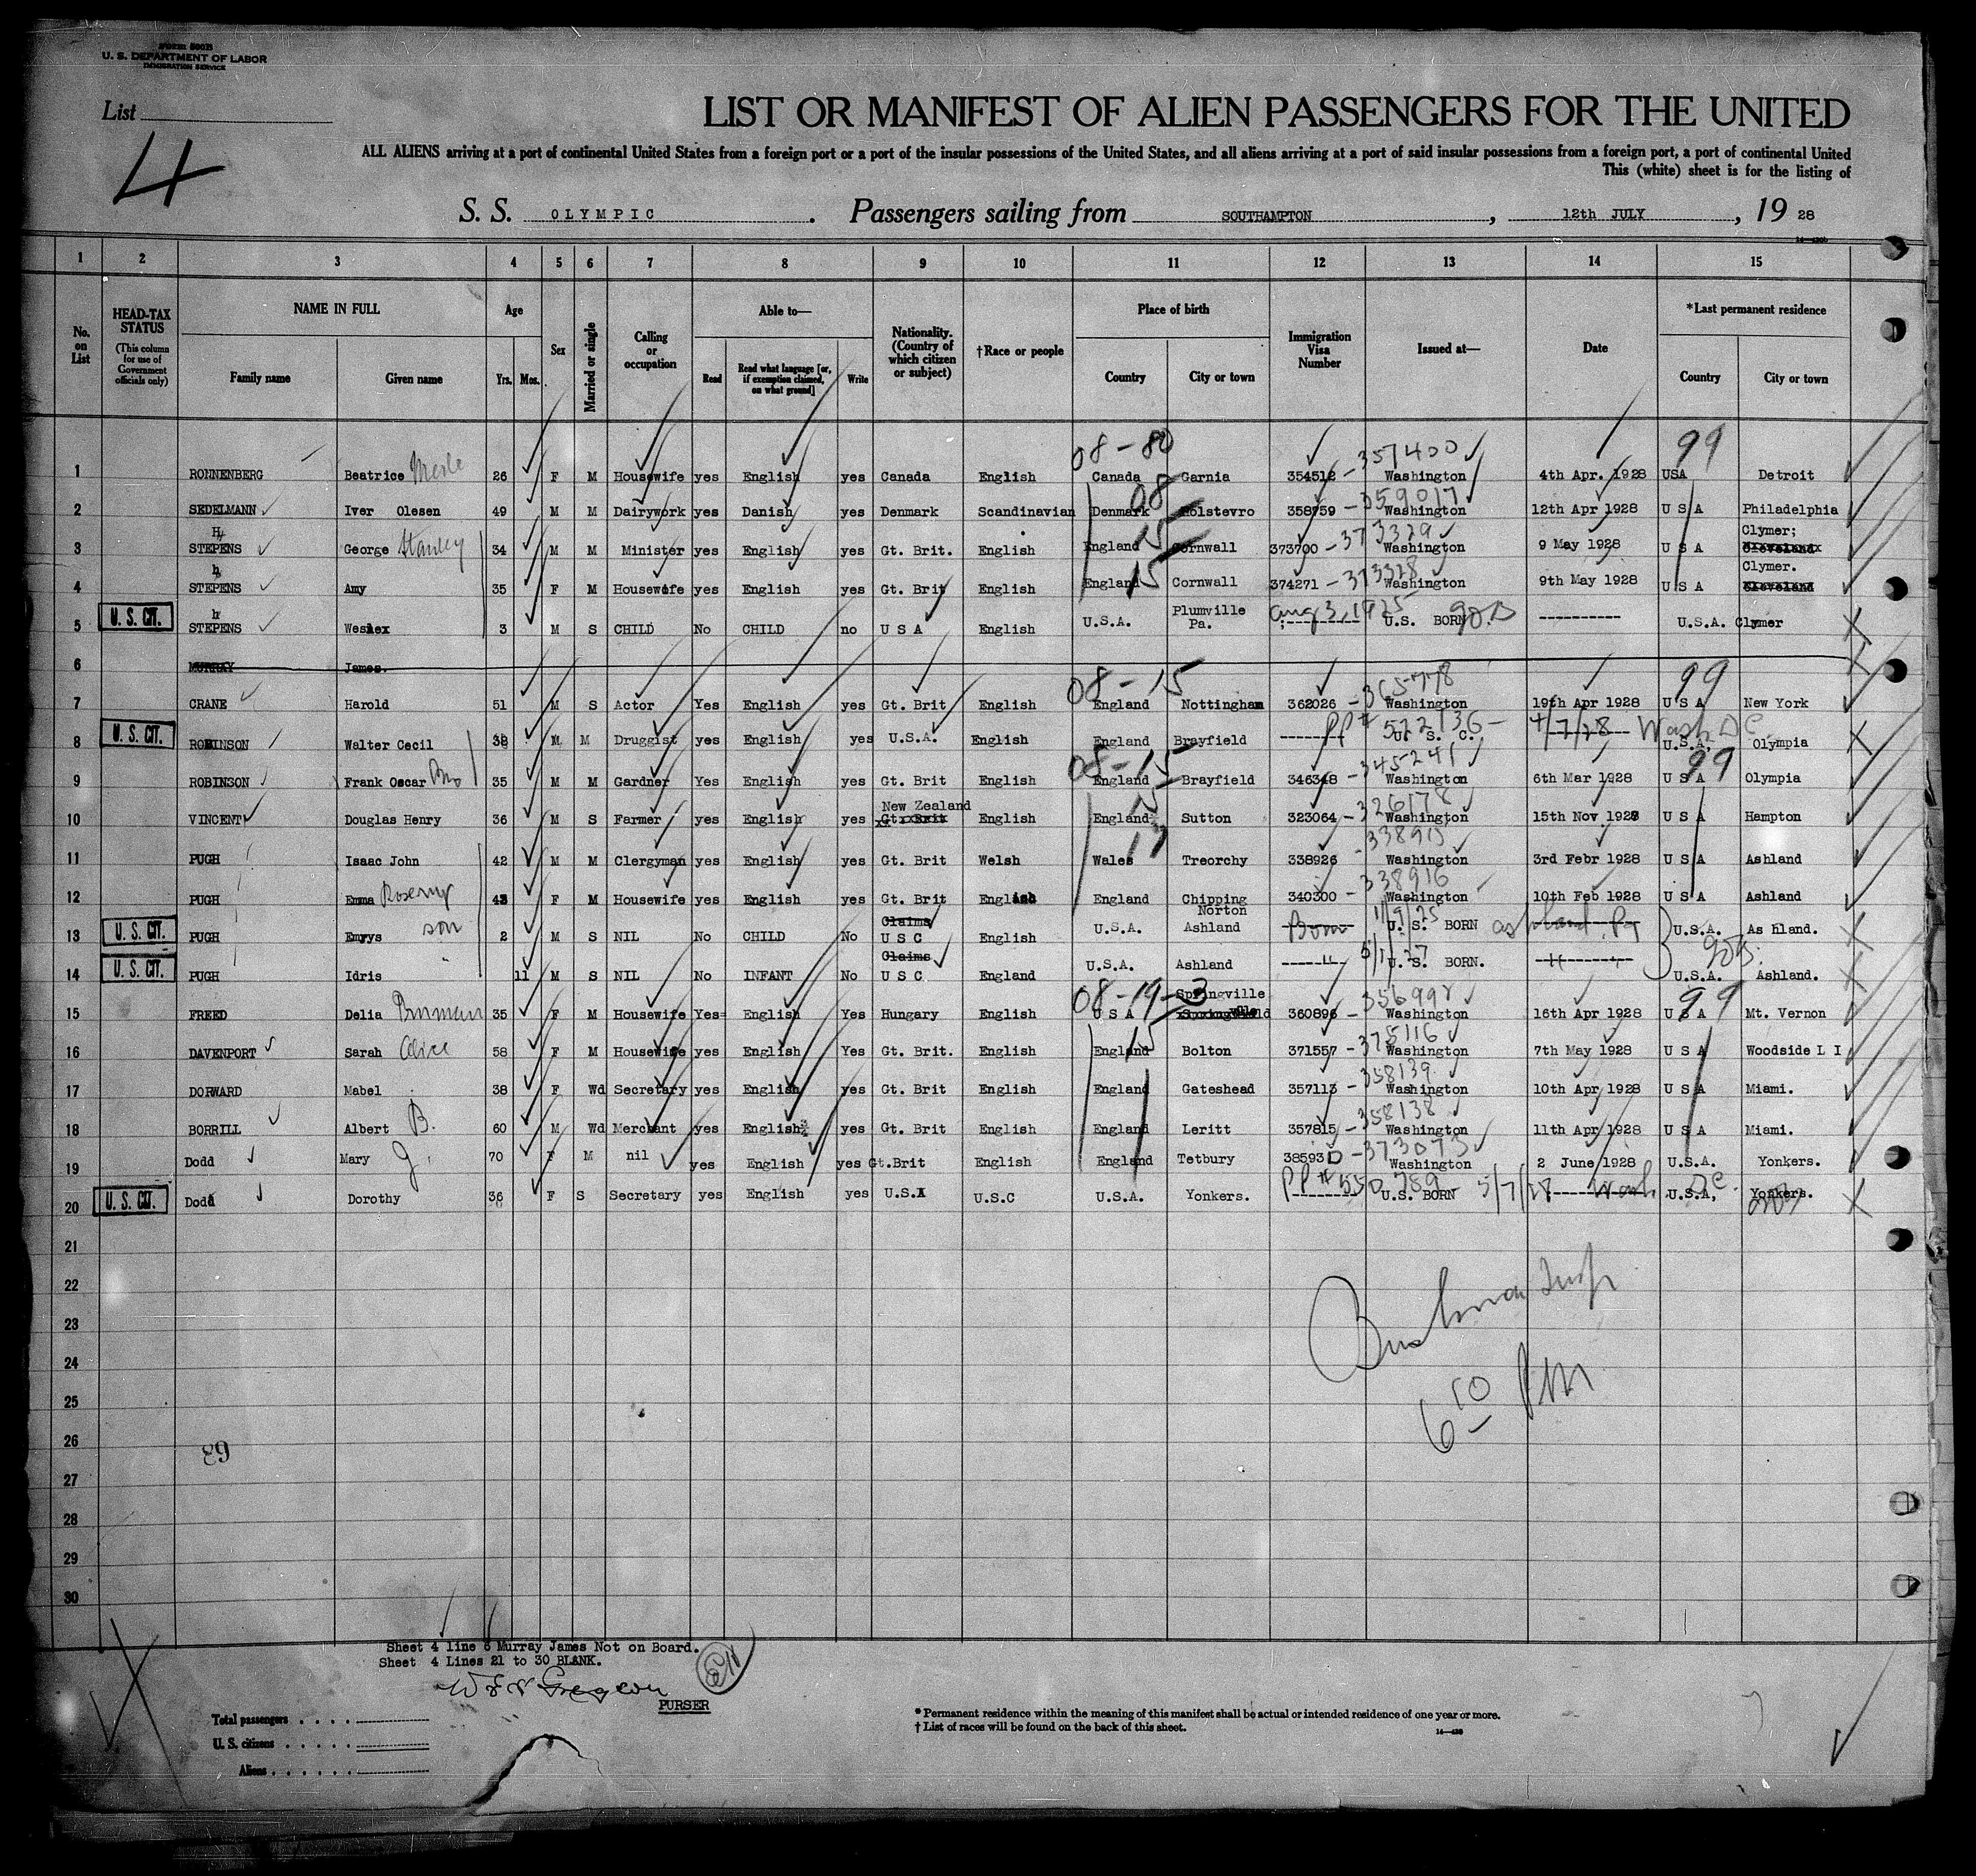 Form 500B
U. S. DEPARTMENT OF LABOR
IMMIGRATION SERVICE
List
4
LIST OR MANIFEST OF ALIEN PASSENGERS FOR THE UNITED
ALL ALIENS arriving at a port of continental United States from a foreign port or a port of the insular possessions of the United States, and all aliens arriving at a port of said insular possessions from a foreign port, a port of continental United
This (white) sheet is for the listing of
S. S. OLYMPIC. Passengers sailing from SOUTHAMPTON, 12th JULY, 19 28
1 2 3 4 5 6 7 8 9 10 11 12 13 14 15
No. on List
HEAD-TAX STATUS (This column for use of Government officials only)
NAME IN FULL
Family name Given name
Age
Yrs. Mos.
Sex
Married or single
Calling or occupation
Able to—
Read Read what language [or, if exemption claimed, on what ground] Write
Nationality. (Country of which citizen or subject)
†Race or people
Place of birth
Country City or town
Immigration Visa Number
Issued at—
Date
*Last permanent residence
Country City or town
08-80 357400 99
1 RONNENBERG Beatrice Merle 26 F M Housewife yes English yes Canada English Canada Garnia 354512 Washington 4th Apr. 1928 USA Detroit
08 359017
2 SEDELMANN Iver Olesen 49 M M Dairywork yes Danish yes Denmark Scandinavian Denmark Holstevro 358759 Washington 12th Apr 1928 U S A Philadelphia
H 15 373329 Clymer;
3 STEPENS George Stanley 34 M M Minister yes English yes Gt. Brit. English England Cornwall 373700 Washington 9 May 1928 U S A Cleveland
h 15 373328 Clymer.
4 STEPENS Amy 35 F M Housewife yes English yes Gt. Brit English England Cornwall 374271 Washington 9th May 1928 U S A Cleveland
U. S. CIT. h Plumville Aug 3, 1925
5 STEPENS Weslex 3 M S CHILD No CHILD no U S A English U.S.A. Pa. U.S. BORN U.S.A. Clymer
6 MURRAY James.
08-15 365778 99
7 CRANE Harold 51 M S Actor Yes English yes Gt. Brit English England Nottingham 362026 Washington 19th Apr 1928 U S A New York
U. S. CIT. PP# 522136 4/7/28 Wash DC
8 ROBINSON Walter Cecil 38 M M Druggist yes English yes U.S.A. English England Brayfield U. S. C. U.S.A, Olympia
08-15 345241 99
9 ROBINSON Frank Oscar Bro 35 M M Gardner Yes English yes Gt. Brit English England Brayfield 346348 Washington 6th Mar 1928 U S A Olympia
New Zealand 15 326178
10 VINCENT Douglas Henry 36 M S Farmer yes English yes Gt. Brit English England Sutton 323064 Washington 15th Nov 1928 U S A Hampton
17 338915
11 PUGH Isaac John 42 M M Clergyman yes English yes Gt. Brit Welsh Wales Treorchy 338926 Washington 3rd Febr 1928 U S A Ashland
338916
12 PUGH Emma 43 F M Housewife yes English yes Gt. Brit English England Chipping Norton 340300 Washington 10th Feb 1928 U S A Ashland
U. S. CIT. Claims 1/9/25
13 PUGH Emrys son 2 M S NIL No CHILD No U S C English U.S.A. Ashland Born U. S. BORN Ashland. As hland.
U. S. CIT. Claims 5/1/27
14 PUGH Idris 11 M S NIL No INFANT No U S C England U.S.A. Ashland U. S. BORN. U.S.A. Ashland.
08-19-3 Springville 99
15 FREED Delia 35 F M Housewife Yes English Yes Hungary English U S A 360896 Washington 16th Apr 1928 U S A Mt. Vernon
15 375116
16 DAVENPORT Sarah Alice 58 F M Housewife yes English Yes Gt. Brit. English England Bolton 371557 Washington 7th May 1928 U S A Woodside L I
358139
17 DORWARD Mabel 38 F Wd Secretary yes English yes Gt. Brit English England Gateshead 357113 Washington 10th Apr 1928 U S A Miami.
358138
18 BORRILL Albert B. 60 M Wd Merchant yes English yes Gt. Brit English England Leritt 357815 Washington 11th Apr 1928 U S A Miami.
373073
19 Dodd Mary G. 70 F M nil yes English yes Gt.Brit English England Tetbury 38593D Washington 2 June 1928 U.S.A. Yonkers.
U. S. CIT. PP# 550789 5/7/28 Wash. DC.
20 Dodd Dorothy 36 F S Secretary yes English yes U.S.A U.S.C U.S.A. Yonkers. U.S. BORN U.S.A, Yonkers.
21
22
23
24
25
26
27
28
29
30
6 10 PM
63
Sheet 4 line 6 Murray James Not on Board.
Sheet 4 Lines 21 to 30 BLANK.
PURSER
Total passengers
U. S. citizens
Aliens
* Permanent residence within the meaning of this manifest shall be actual or intended residence of one year or more.
† List of races will be found on the back of this sheet.